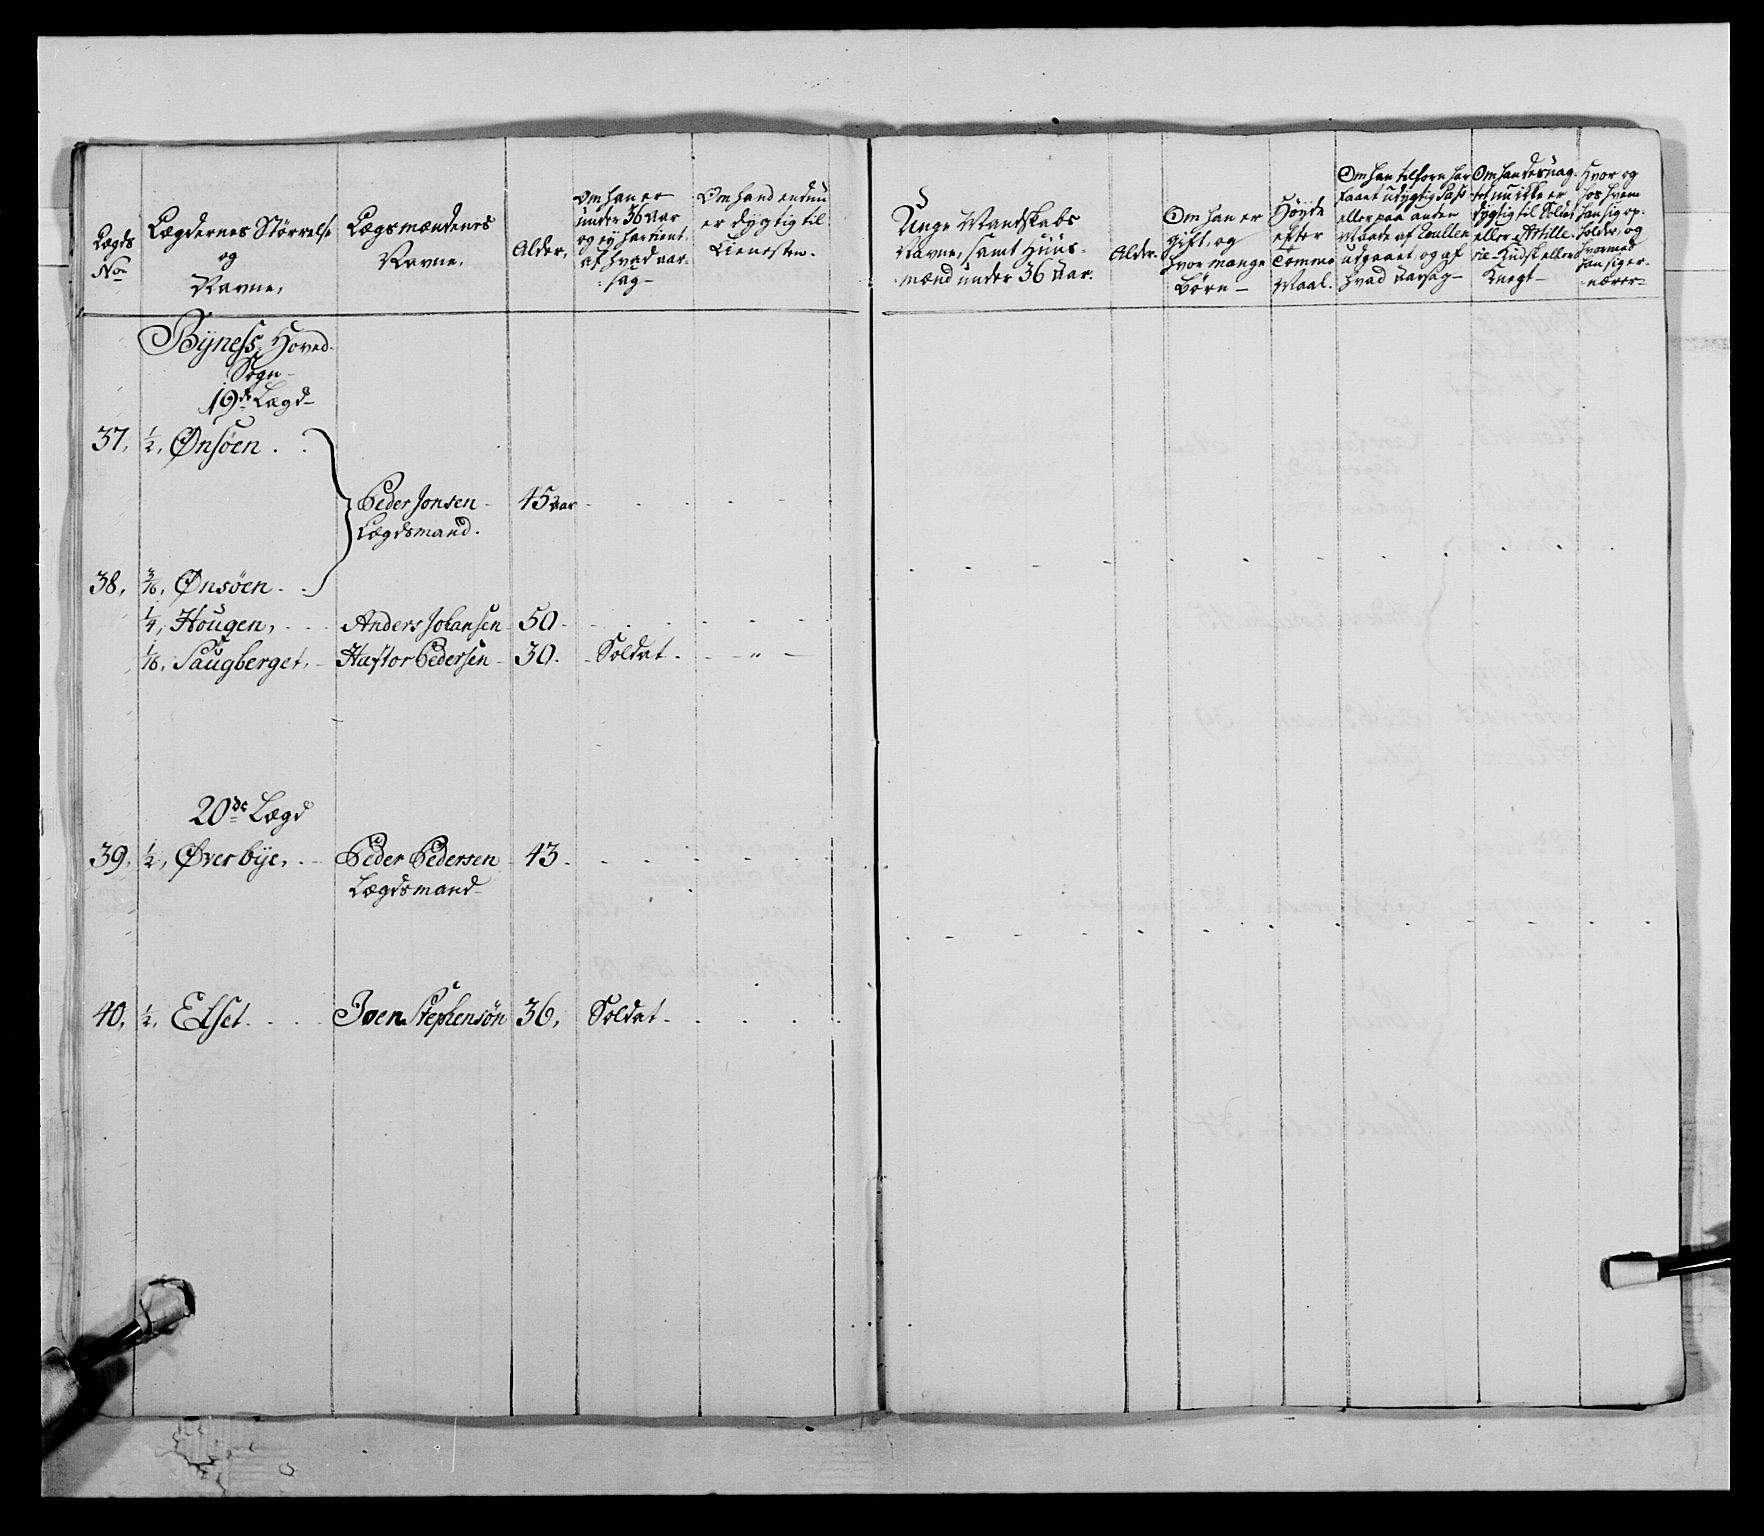 Lægds
No
Lægdernes Størrelse
og
Navne,
Lægsmændenes
Navne,
Alder,
Om han er
under 36 Aar
og ey har tient,
af hvad aar-
sag-
Om hand endnu
er dygtig til
Tienesten.
Unge Mandskabs
Navne, samt Huus-
mænd under 36 Aar.
Alder.
Om han er
gift, og
hvor mange
Børn-
Høyde
efter
Tomme
Maal.
Om han tilforn har
faaet udygtig Pass
eller paa anden
Maade af Rullen
udgaaet, og af
hvad aarsag-
Om han desuag-
tet nu ikke er
dygtig til Soldat
eller Artille-
rie-Kudsk eller
Knegt-
Hvor og
hos hvem
han sig op-
holder, og
hvormed
han sig er-
nærer-
Byness Hoved-
Sogn-
19de Lægd-
37, 1/2, Ønsöen . .
Peder Jonsen - 45 Aar - . . - -
Lægdsmand.
38, 3/16, Ønsöen . .
1/4, Hougen, . . . Anders Johansen 50 . . . - - -
1/16, Saugberget, - Haftor Pedersen - 30. - Soldat . - - " -
20de Lægd
39, 1/2, Øverbye, . - Peder Pedersen - 43 . . . . . .
Lægdsmand-
40, 1/2, Elset . . . . Iven Stephensøn 36, Soldat . . . . .